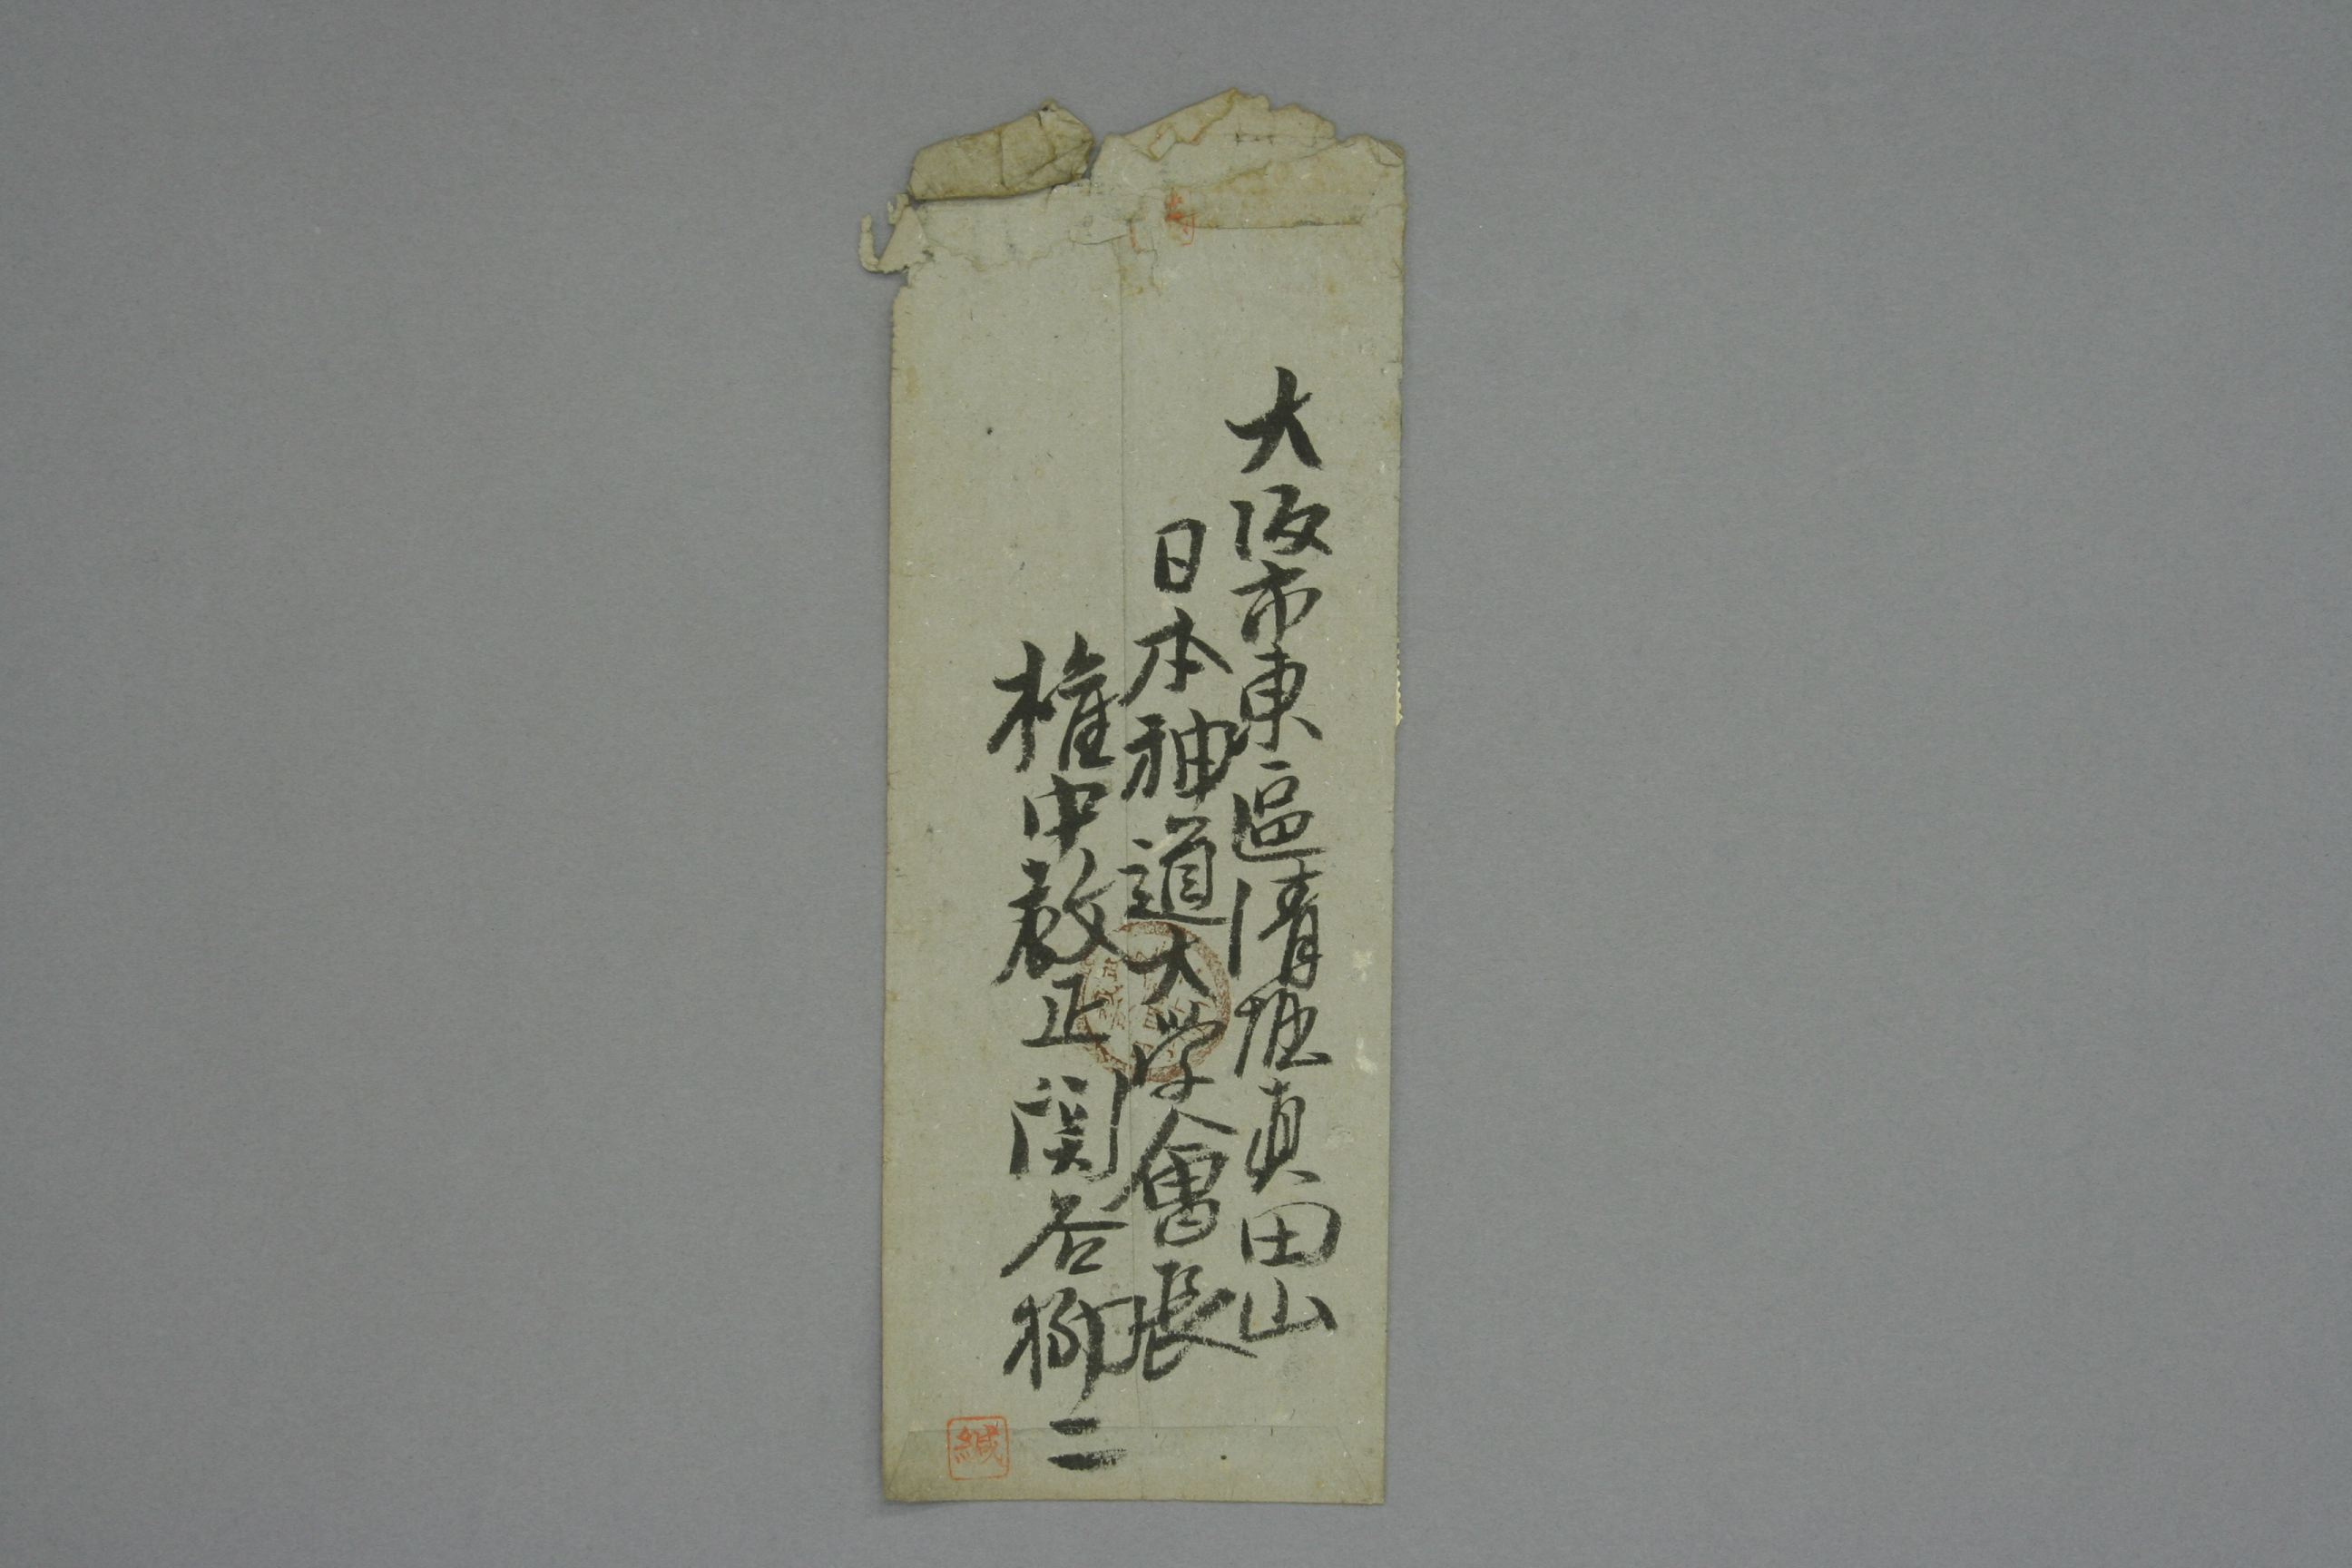 大阪市東區清堀真田山
日本神道大学會長
権中教正関谷獅二
緘